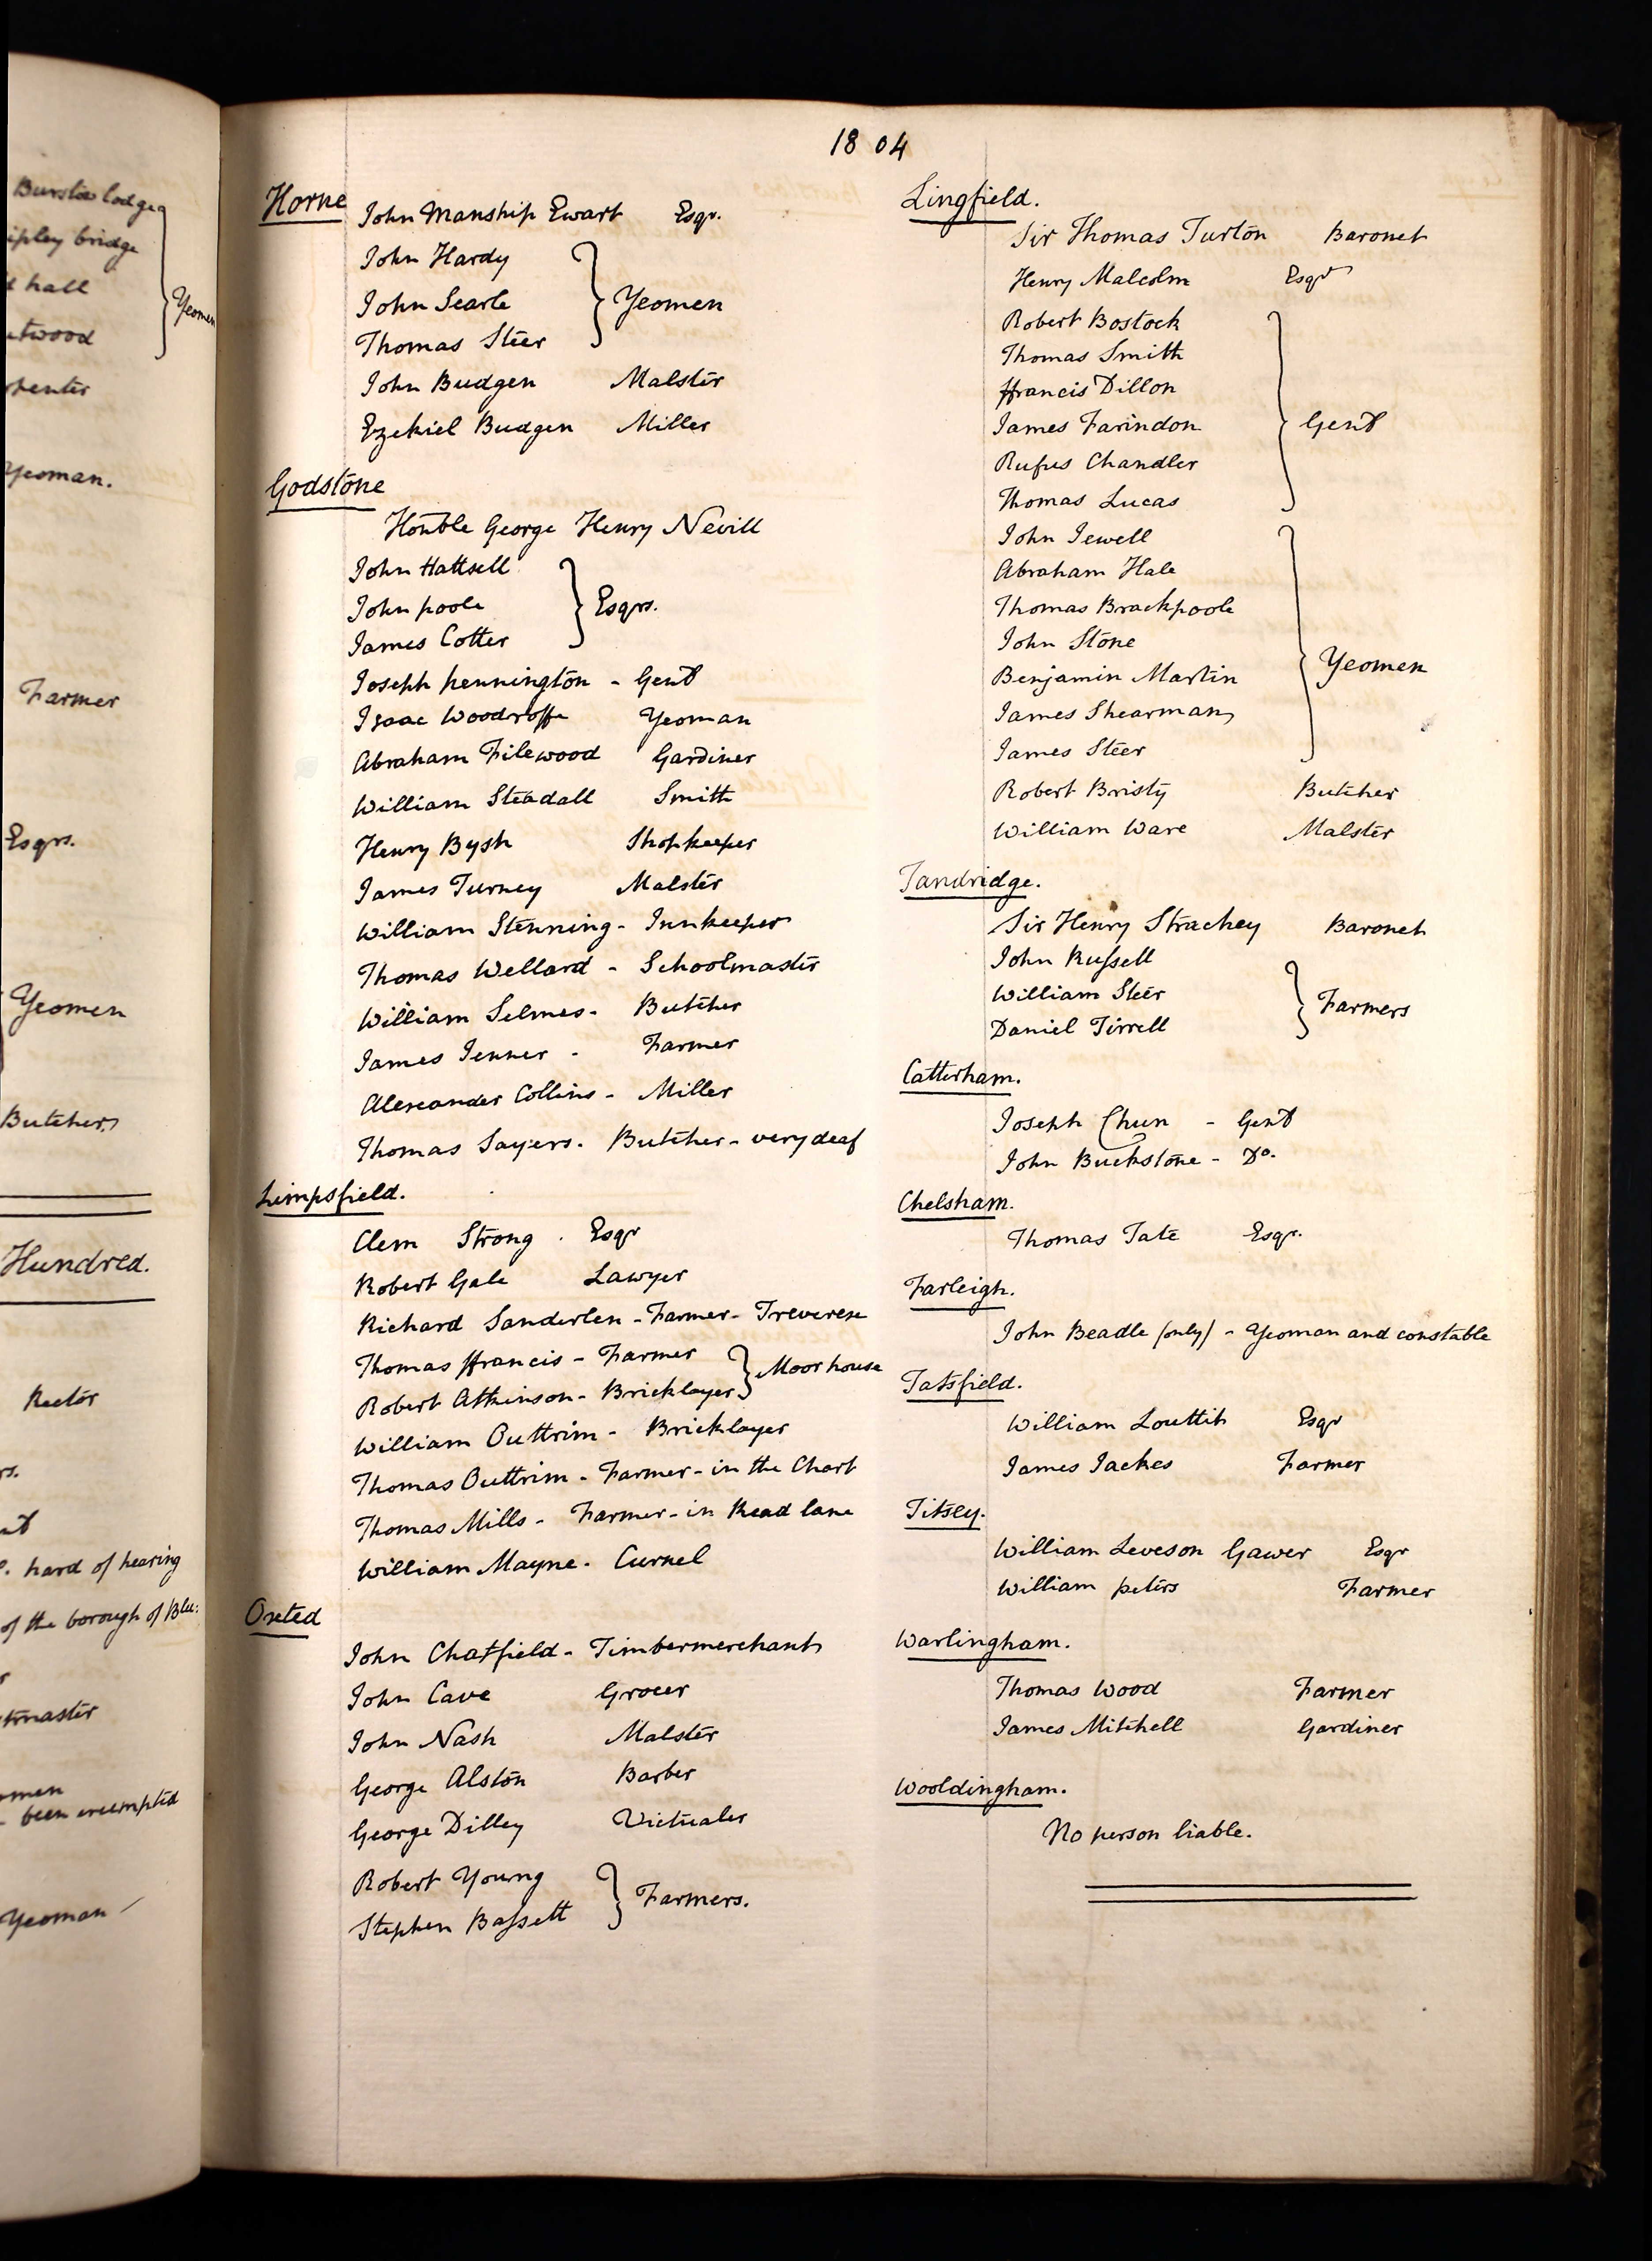 Burstow lodge
ipley bridge
hall
twood
Yeomen
penter
Yeoman.
Farmer
Esqrs.
Yeomen
Butcher
Hundred.
Rector
rs.
hard of hearing
of the borough of Ble:
tmaster
omen
been exempted
Yeoman
1804
Horne
John Manship Ewart Esqr.
John Hardy
John Searle } Yeomen
Thomas Steer
John Budgen Malster
Ezekiel Budgen Miller
Godstone
Honble George Henry Nevill
John Hattsell
John poole } Esqrs.
James Cotter
Joseph pennington - Gent
Isaac Woodroffe Yeoman
Abraham Filewood Gardiner
William Steadall Smith
Henry Bysh Shopkeeper
James Turney Malster
William Stenning - Innkeeper
Thomas Wellard - Schoolmaster
William Selmes - Butcher
James Jenner - Farmer
Alexander Collins - Miller
Thomas Sayers. Butcher - very deaf
Limpsfield.
Clem Strong . Esqr
Robert Gale Lawyer
Richard Sanderlen - Farmer - Treverex
Thomas ffrancis - Farmer
} Moorhouse
Robert Atkinson - Bricklayer
William Outtrim - Bricklayer
Thomas Outtrim - Farmer - in the Chart
Thomas Mills - Farmer - in Read lane
William Mayne. Curnel
Oxted
John Chatfield - Timbermerchant
John Cave Grocer
John Nash Malster
George Alston Barber
George Dilley Victualer
Robert Young
} Farmers.
Stephen Bassett
Lingfield.
Sir Thomas Turton Baronet
Henry Malcolm Esqr
Robert Bostock
Thomas Smith
ffrancis Dillon
James Farindon } Gent
Rufus Chandler
Thomas Lucas
John Jewell
Abraham Hale
Thomas Brackpoole
John Stone
Benjamin Martin } Yeomen
James Shearman
James Steer
Robert Bristy Butcher
William Ware Malster
Tandridge.
Sir Henry Strachey Baronet
John Russell
William Steer } Farmers
Daniel Tirrell
Catterham.
Joseph Chun - Gent
John Buckstone - Do.
Chelsham.
Thomas Tate Esqr.
Farleigh.
John Beadle (only) - Yeoman and constable
Tatsfield.
William Louttit Esqr
James Jackes Farmer
Titsey.
William Leveson Gawer Esqr
William peters Farmer
Warlingham.
Thomas Wood Farmer
James Mitchell Gardiner
Wooldingham.
No person liable.